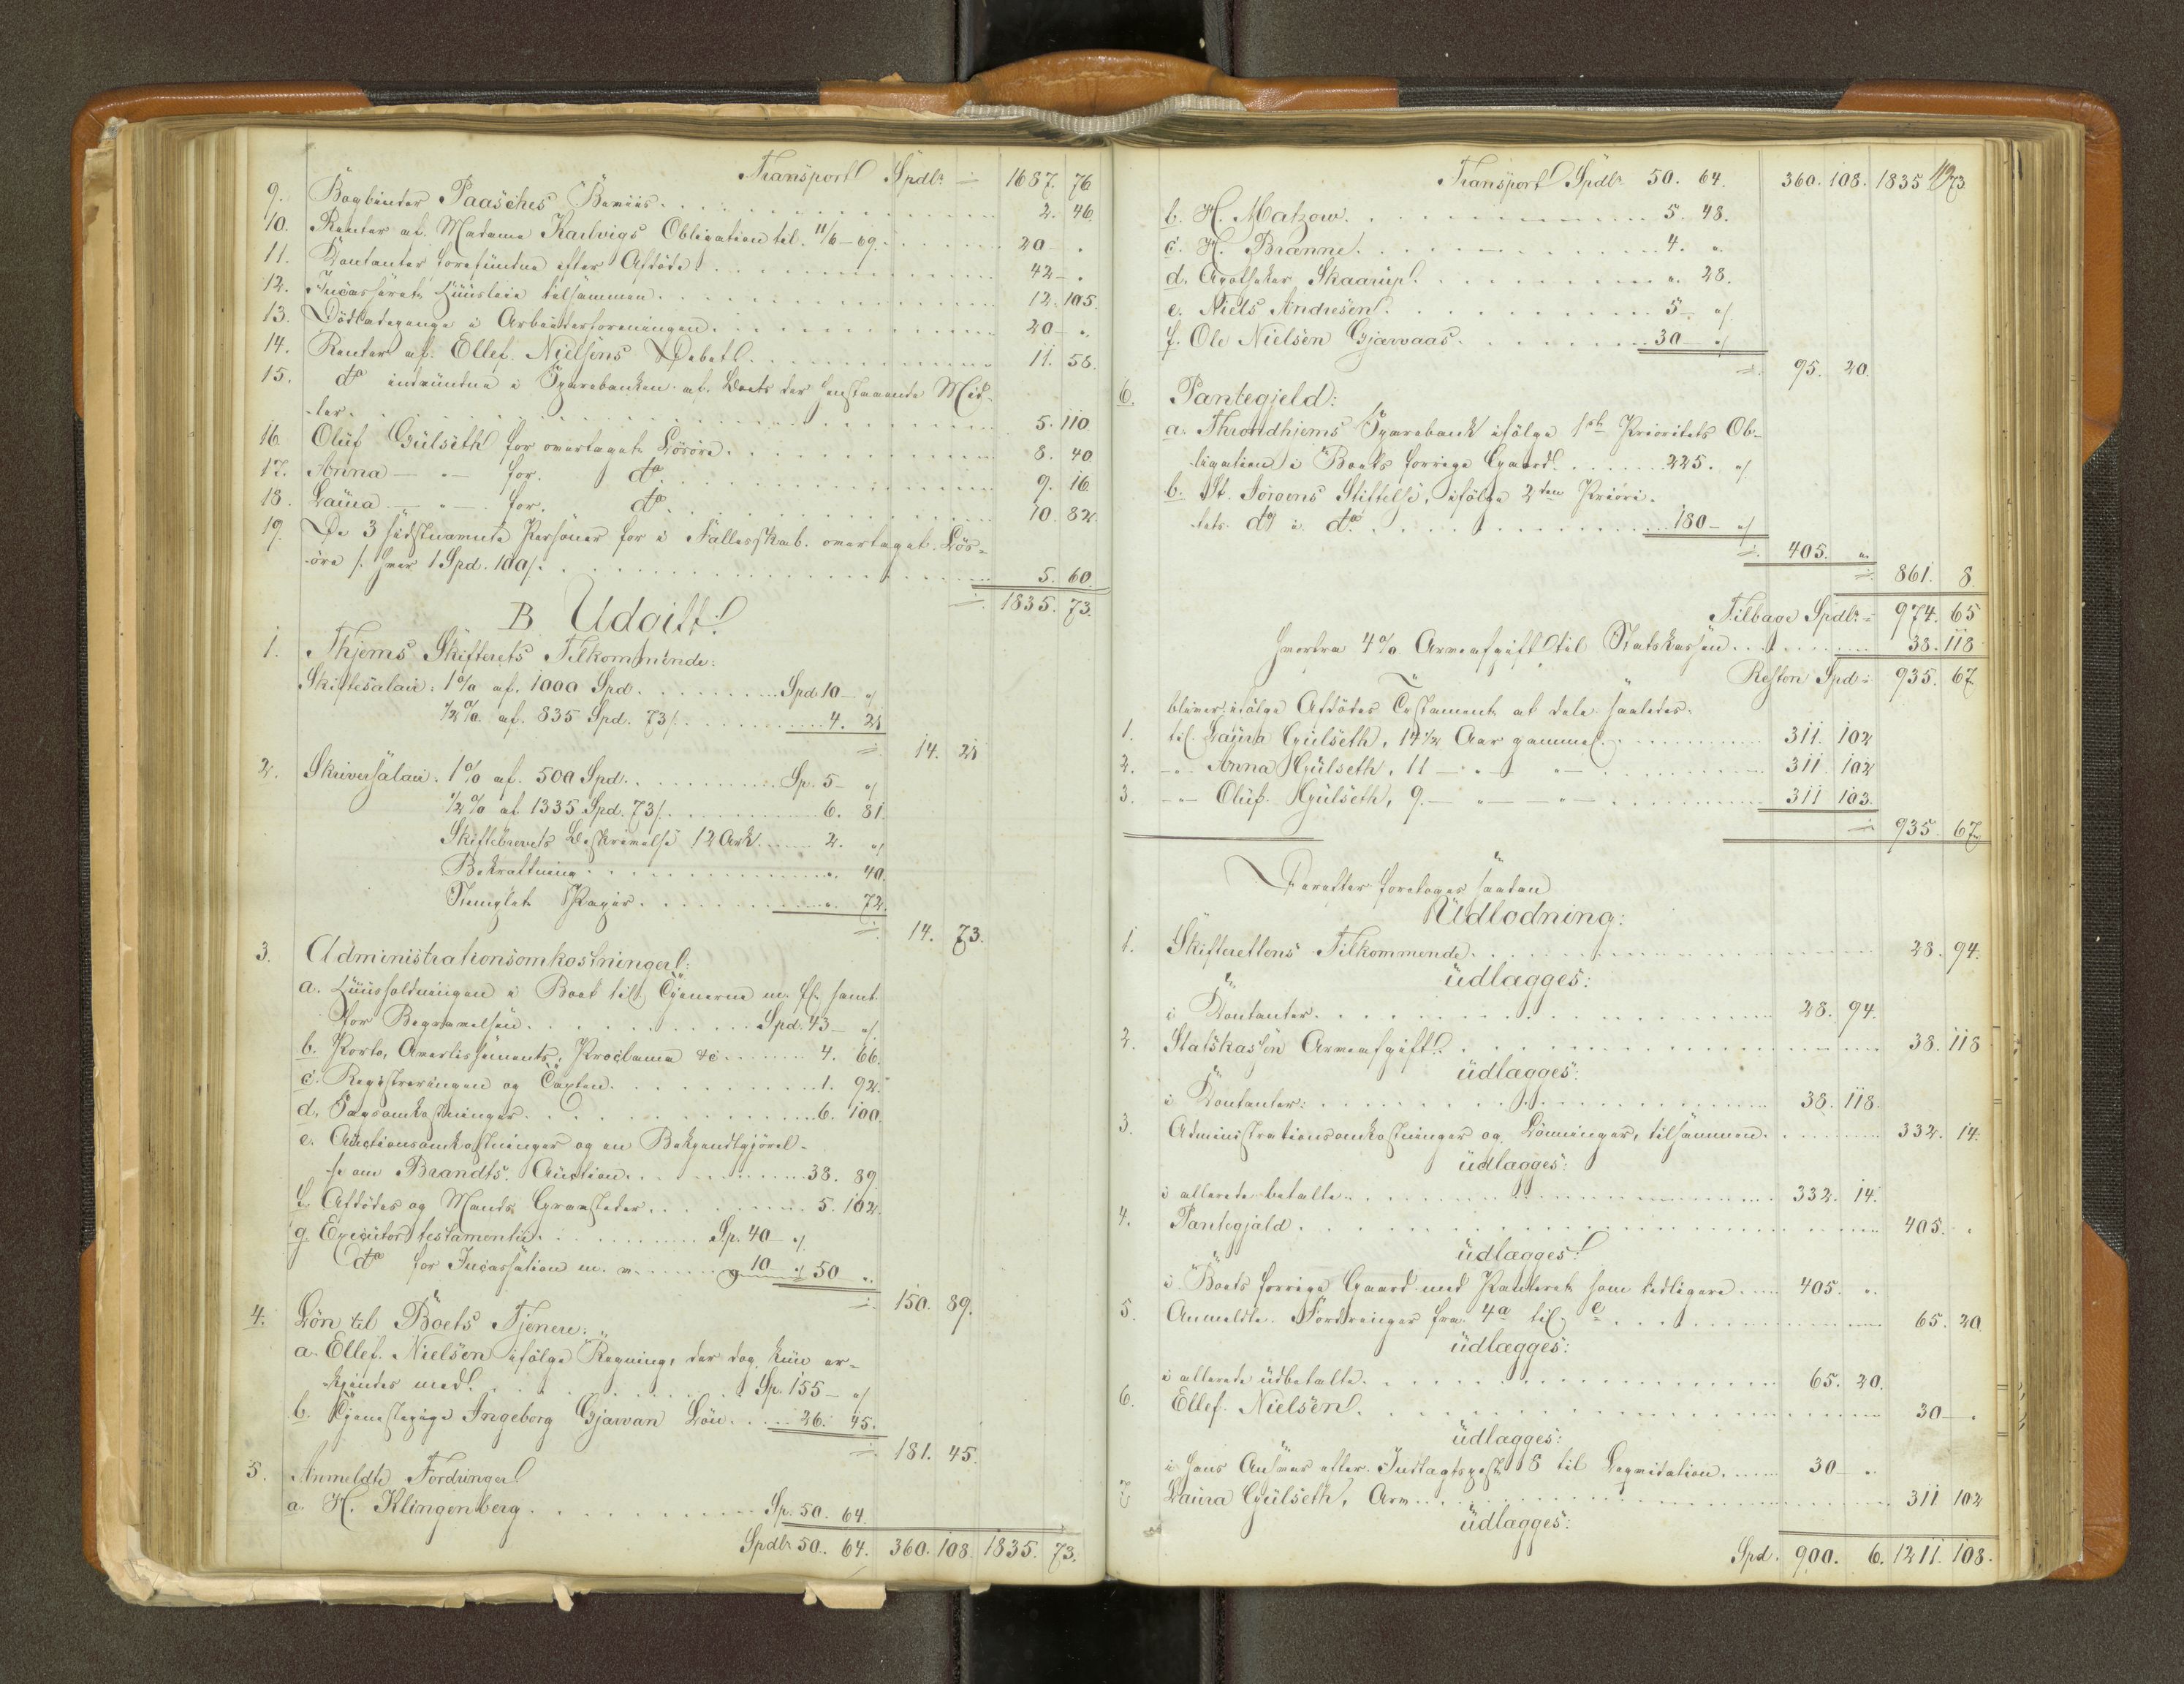 Transport Spdlr 1687. 76
9. Bogbinder Paasches Beviis 2. 46
10. Renter af Madame Hartvigs Obligation til 11/6-69. 20 - "
11. Kontanter forefundne efter Afdöde 42 - "
12. Incasseret Huusleie tilsammen 12. 105.
13. Dödladegange i Arbeiderforeningen 20 - "
14. Renter af Ellef Nielsens Debet 11. 58.
15. do indvundne i Sparebanken af Boets der henstaaende Mid-
-ler. 5. 110
16 Oluf Gülseth for overtaget Lösöre 8. 40
17. Anna - " - for do 9. 16
18. Laura - " - for do 10. 82.
19. De 3 sidstnævnte Personer for i Fællesskab overtaget Lös-
-öre /: hver 1 Spd. 100/: 5. 60.
1835. 73.
B Udgift.
1. Thjems Skifterets Tilkommende:
Skiftesalair: 1% af 1000 Spd Spd 10 - "/
1/2% af 835 Spd. 73/. 4. 21
14. 21
2. Skriversalair: 1% af 500 Spd. Sp. 5 - "/
1/2% af 1335 Spd. 73/. 6. 81.
Skiftebrevets Beskrivelse 12 Ark 2. "/
Bekræftning ". 40.
Stemplet Papir ". 72.
14. 73.
3. Administrationsomkostninger:
a. Huusholdningen i Boet til Tjenerne m. fl. samt
for Begravelsen Spd. 43 - "/
b. Porto, Avertissements, Proclama &c 4. 66.
c. Registreringen og Taxten 1. 92.
d. Sagsomkostninger 6. 100.
e. Auctionsomkostninger og en Bekjendtgjörel-
-se om Brandts Auction 38. 89
f. Afdödes og Mands Gravsteder 5. 102.
g. Executor testamentii Sp. 40 - "/
do for Incassation m. m. 10 - "/ 50 "
150. 89.
4. Lön til Boets Tjenere:
a. Ellef Nielsen ifölge Regning, der dog kun er-
-kjendes med Sp. 155 - "/
b. Tjenestepige Ingeborg Gjærvan Lön 26. 45.
181. 45.
5. Anmeldte Fordringer
a. H. Klingenberg Sp. 50. 64.
Spdlr 50. 64. 360. 108. 1835. 73.
Transport Spdlr 50. 64. 360. 108. 1835 73
b. H. Matzow 5. 48.
c. H. Brænne 4. "
d. Apotheker Skaarup ". 28.
e. Niels Andresen 5 - "/
f. Ole Nielsen Gjærvaas 30 - "/
95. 20.
6. Pantegjeld:
a. Throndhjems Sparebank ifölge 1ste Prioritets Ob-
-ligation i Boets forrige Gaard 225. "/
b. St. Jörgens Stiftelse, ifölge 2den Priori-
-tets do i do 180 - "/
405. "
861. 8.
Tilbage Spdlr 974. 65
hvorfra 4% Arveafgift til Statskassen 38. 118
Resten Spd 935. 67
bliver ifölge Afdödes Testament at dele saaledes:
1. til Laura Gülseth, 14 1/2 Aar gammel 311. 102
2. - " - Anna Gülseth, 11 - " - " - 311. 102
3. - " - Oluf Gülseth, 9. - " - " - 311 103.
935. 67
Derefter foretages saadan
Udlodning:
1. Skifterettens Tilkommende 28. 94.
udlægges:
i Kontanter 28. 94.
2. Statskassen Arveafgift 38. 118
udlægges:
i Kontanter 38. 118.
3. Administrationsomkostninger og Lönninger, tilsammen 332. 14.
udlægges:
i allerede betalte 332. 14.
4. Pantegjæld 405. "
udlægges:
i Boets forrige Gaard med Panteret som tidligere 405. "
5. Anmeldte Fordringer fra 4a til e 65. 20
udlægges:
i allerede udbetalte 65. 20.
6. Ellef Nielsen 30 - "
udlægges:
i hans Ansvar efter Indtægtspost 8 til Liqvidation 30 - "
7 Laura Gülseth, Arv 311 102
udlægges:
Spd. 900. 6. 1211. 108.